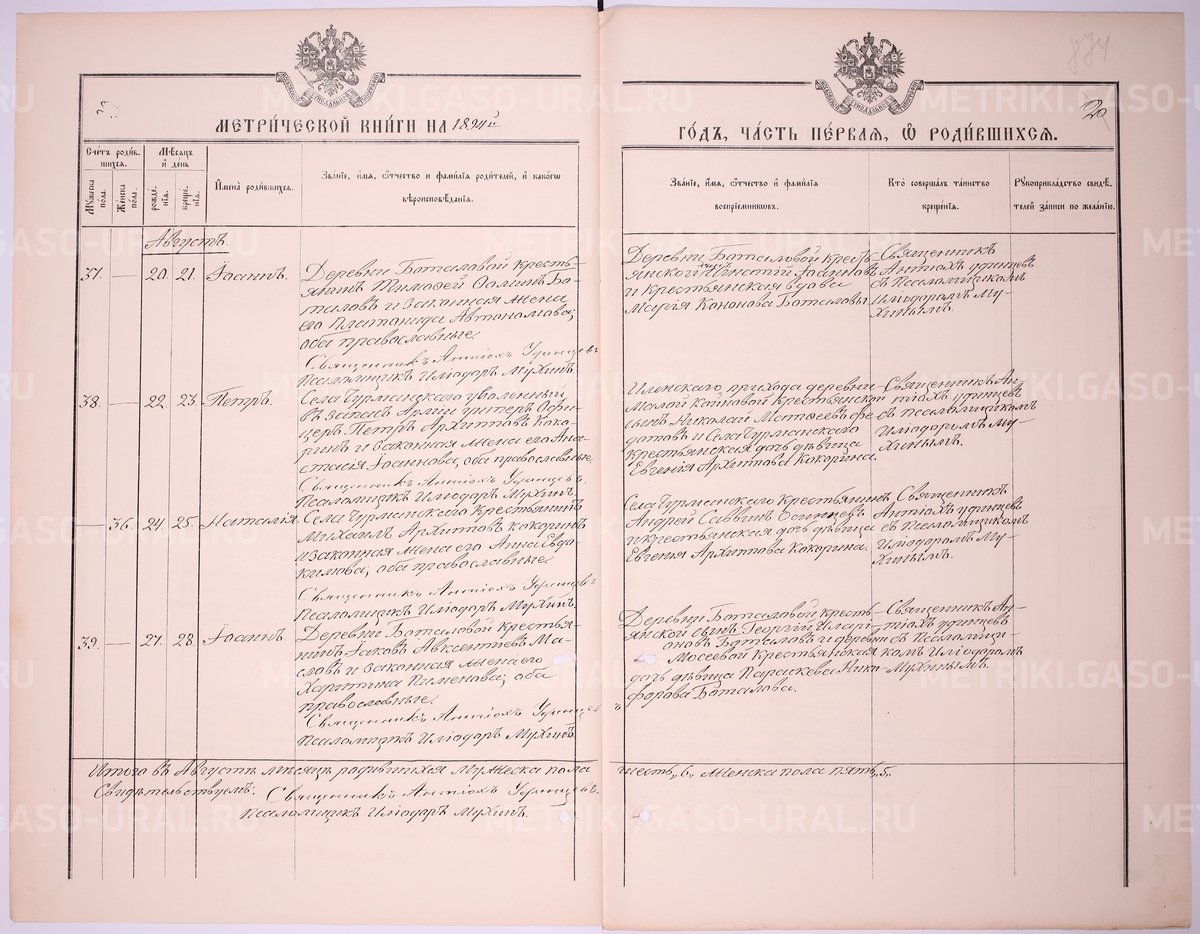 МЕТРИ́ЧЕСКОЙ КНИ́ГИ НА 1894й
Сче́тъ роди́в-
шихся.
Му́жеска пола.
Же́нска пола.
Мѣсяцъ и день
рожде-
нія.
креще-
нія.
Имена̀ роди́вшихся.
Зва́ніе, и́мя, ѻ́тчество и фами́лія роди́телей, и како́гѡ
вѣроисповѣ́данія.
Августъ.
37. — 20. 21. Іоаннъ. Деревни Баталовой кресть-
янинъ Тимофей Ба-
таловъ и законная жена
его Платонида Автономова;
оба православные.
Священникъ Антіохъ Удинцевъ
Псаломщикъ Иліодоръ Мухинъ.
38. — 22. 23. Петръ. Села Чурманскаго уволенный
въ запасъ Арміи унтеръ Офи-
церъ Петръ Архиповъ Кока-
ринъ и законная жена его Ана-
стасія Іоаннова, оба православные.
Священникъ Антіохъ Удинцевъ.
Псаломщикъ Иліодоръ Мухинъ.
— 36. 24. 25. Наталія. Села Чурманскаго крестьянинъ
Михаилъ Архиповъ Кокаринъ
и законная жена его Анна Евдо-
кимова; оба православные.
Священникъ Антіохъ Удинцевъ
Псаломщикъ Иліодоръ Мухинъ.
39. — 27. 28. Іоаннъ. Деревни Баталовой крестья-
нинъ Іаковъ Авксентіевъ Ма-
словъ и законная жена его
Харитина Пименова; оба
православные.
Священникъ Антіохъ Удинцевъ
Псаломщикъ Иліодоръ Мухинъ.
Итого въ Августѣ мѣсяцѣ родившихся мужеска пола
Свидѣтельствуемъ: Священникъ Антіохъ Удинцевъ.
Псаломщикъ Иліодоръ Мухинъ.
874
20
ГО́ДЪ, ЧА́СТЬ ПЕ́РВАЯ, Ѡ РОДИ́ВШИХСЯ.
Зва́ніе, и́мя, ѻ́тчество и фами́лія
воспріе́мниковъ.
Кто̀ соверша́лъ та́инство
креще́нія.
Рукоприкла́дство свидѣ́-
телей за́писи по жела́нію.
Деревни Баталовой крест-
янской сынъ Іоанновъ
и крестьянская вдова
Марѳа Кононова Баталовы.
Священникъ
Антіохъ Удинцевъ
съ Псаломщикомъ
Иліодоромъ Му-
хинымъ.
прихода деревни
Малой крестьянскій
сынъ Николай Матѳеевъ Фе-
дотовъ и Села Чурманскаго
крестьянская дочь дѣвица
Евгенія Архипова Кокорина.
Священникъ Ан-
тіохъ Удинцевъ
съ псаломщикомъ
Иліодоромъ Му-
хинымъ.
Села Чурманскаго крестьянинъ
Андрей Саввинъ Осинцевъ
и крестьянская дочь дѣвица
Евгенія Архипова Кокорина.
Священникъ
Антіохъ Удинцевъ
съ псаломщикомъ
Иліодоромъ Му-
хинымъ.
Деревни Баталовой кресть-
янской сынъ Георгій Илері-
оновъ Баталовъ и деревни
Мосеевой крестьянская
дочь дѣвица Параскева Ники-
форова Баталова.
Священникъ Ан-
тіохъ Удинцевъ
съ Псаломщи-
комъ Иліодоромъ
Мухинымъ.
шесть „6„ женска пола пять „5„
METRIKI.GASO-URAL.RU